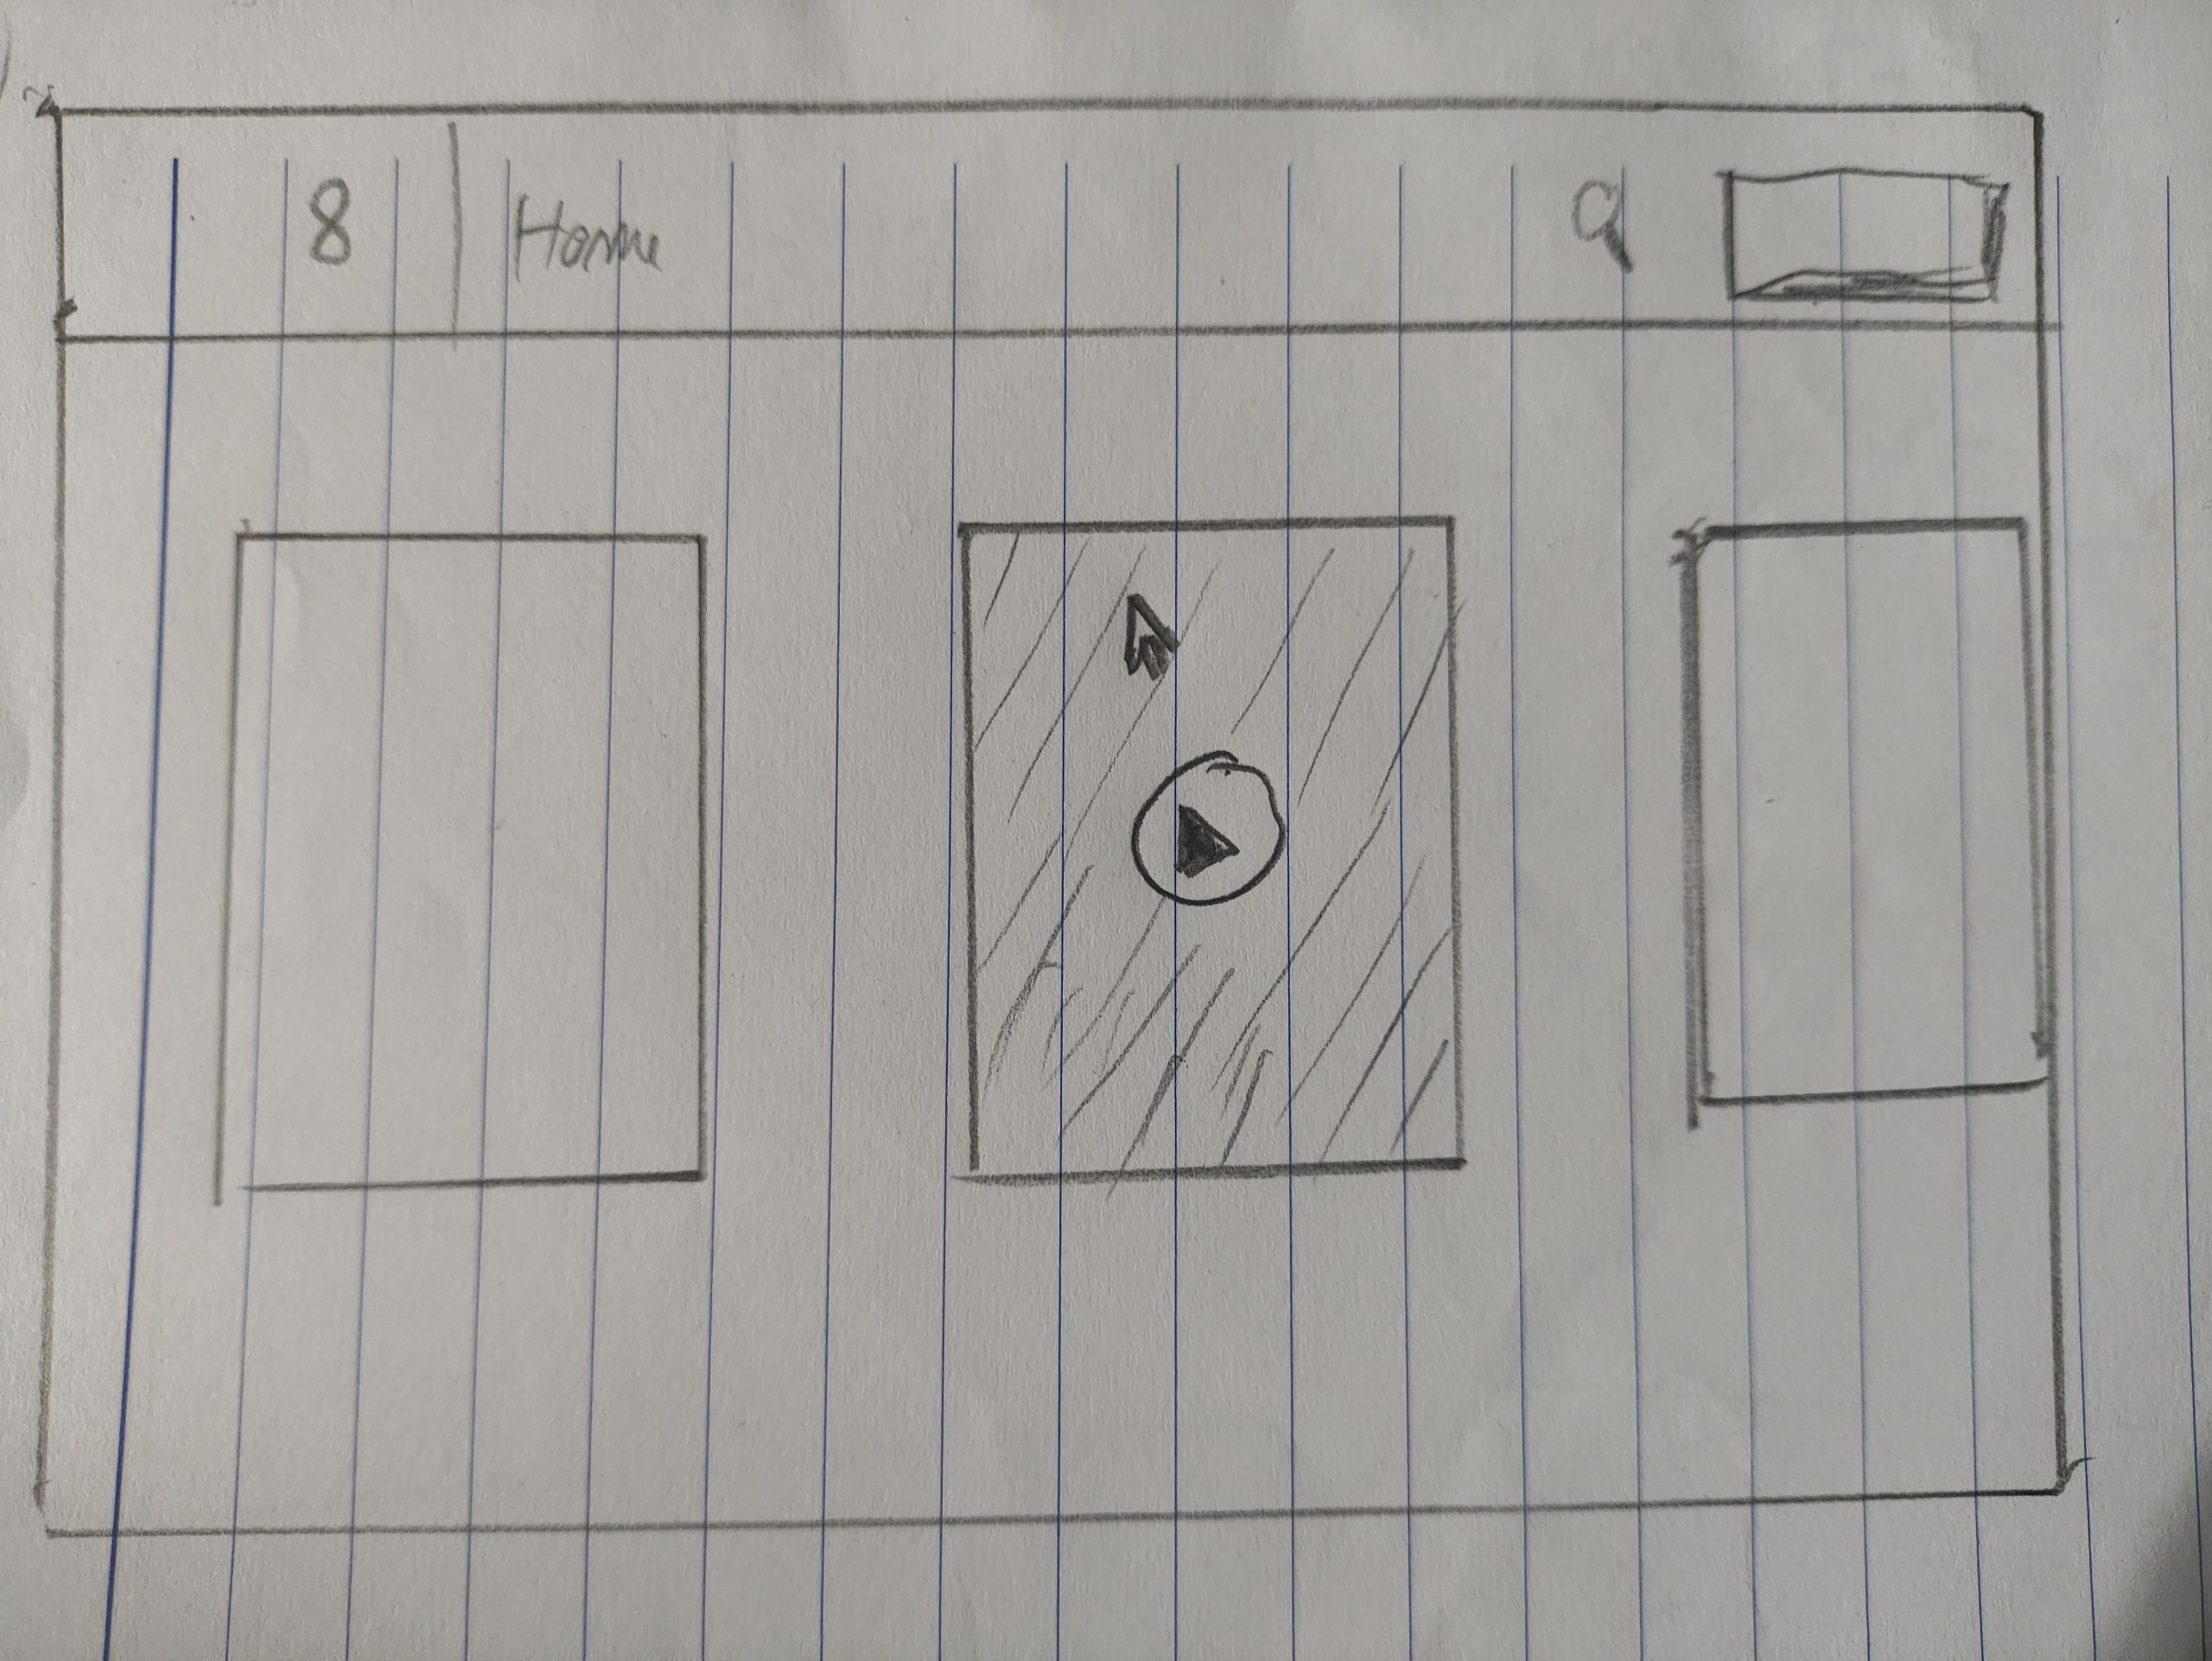 8 Home